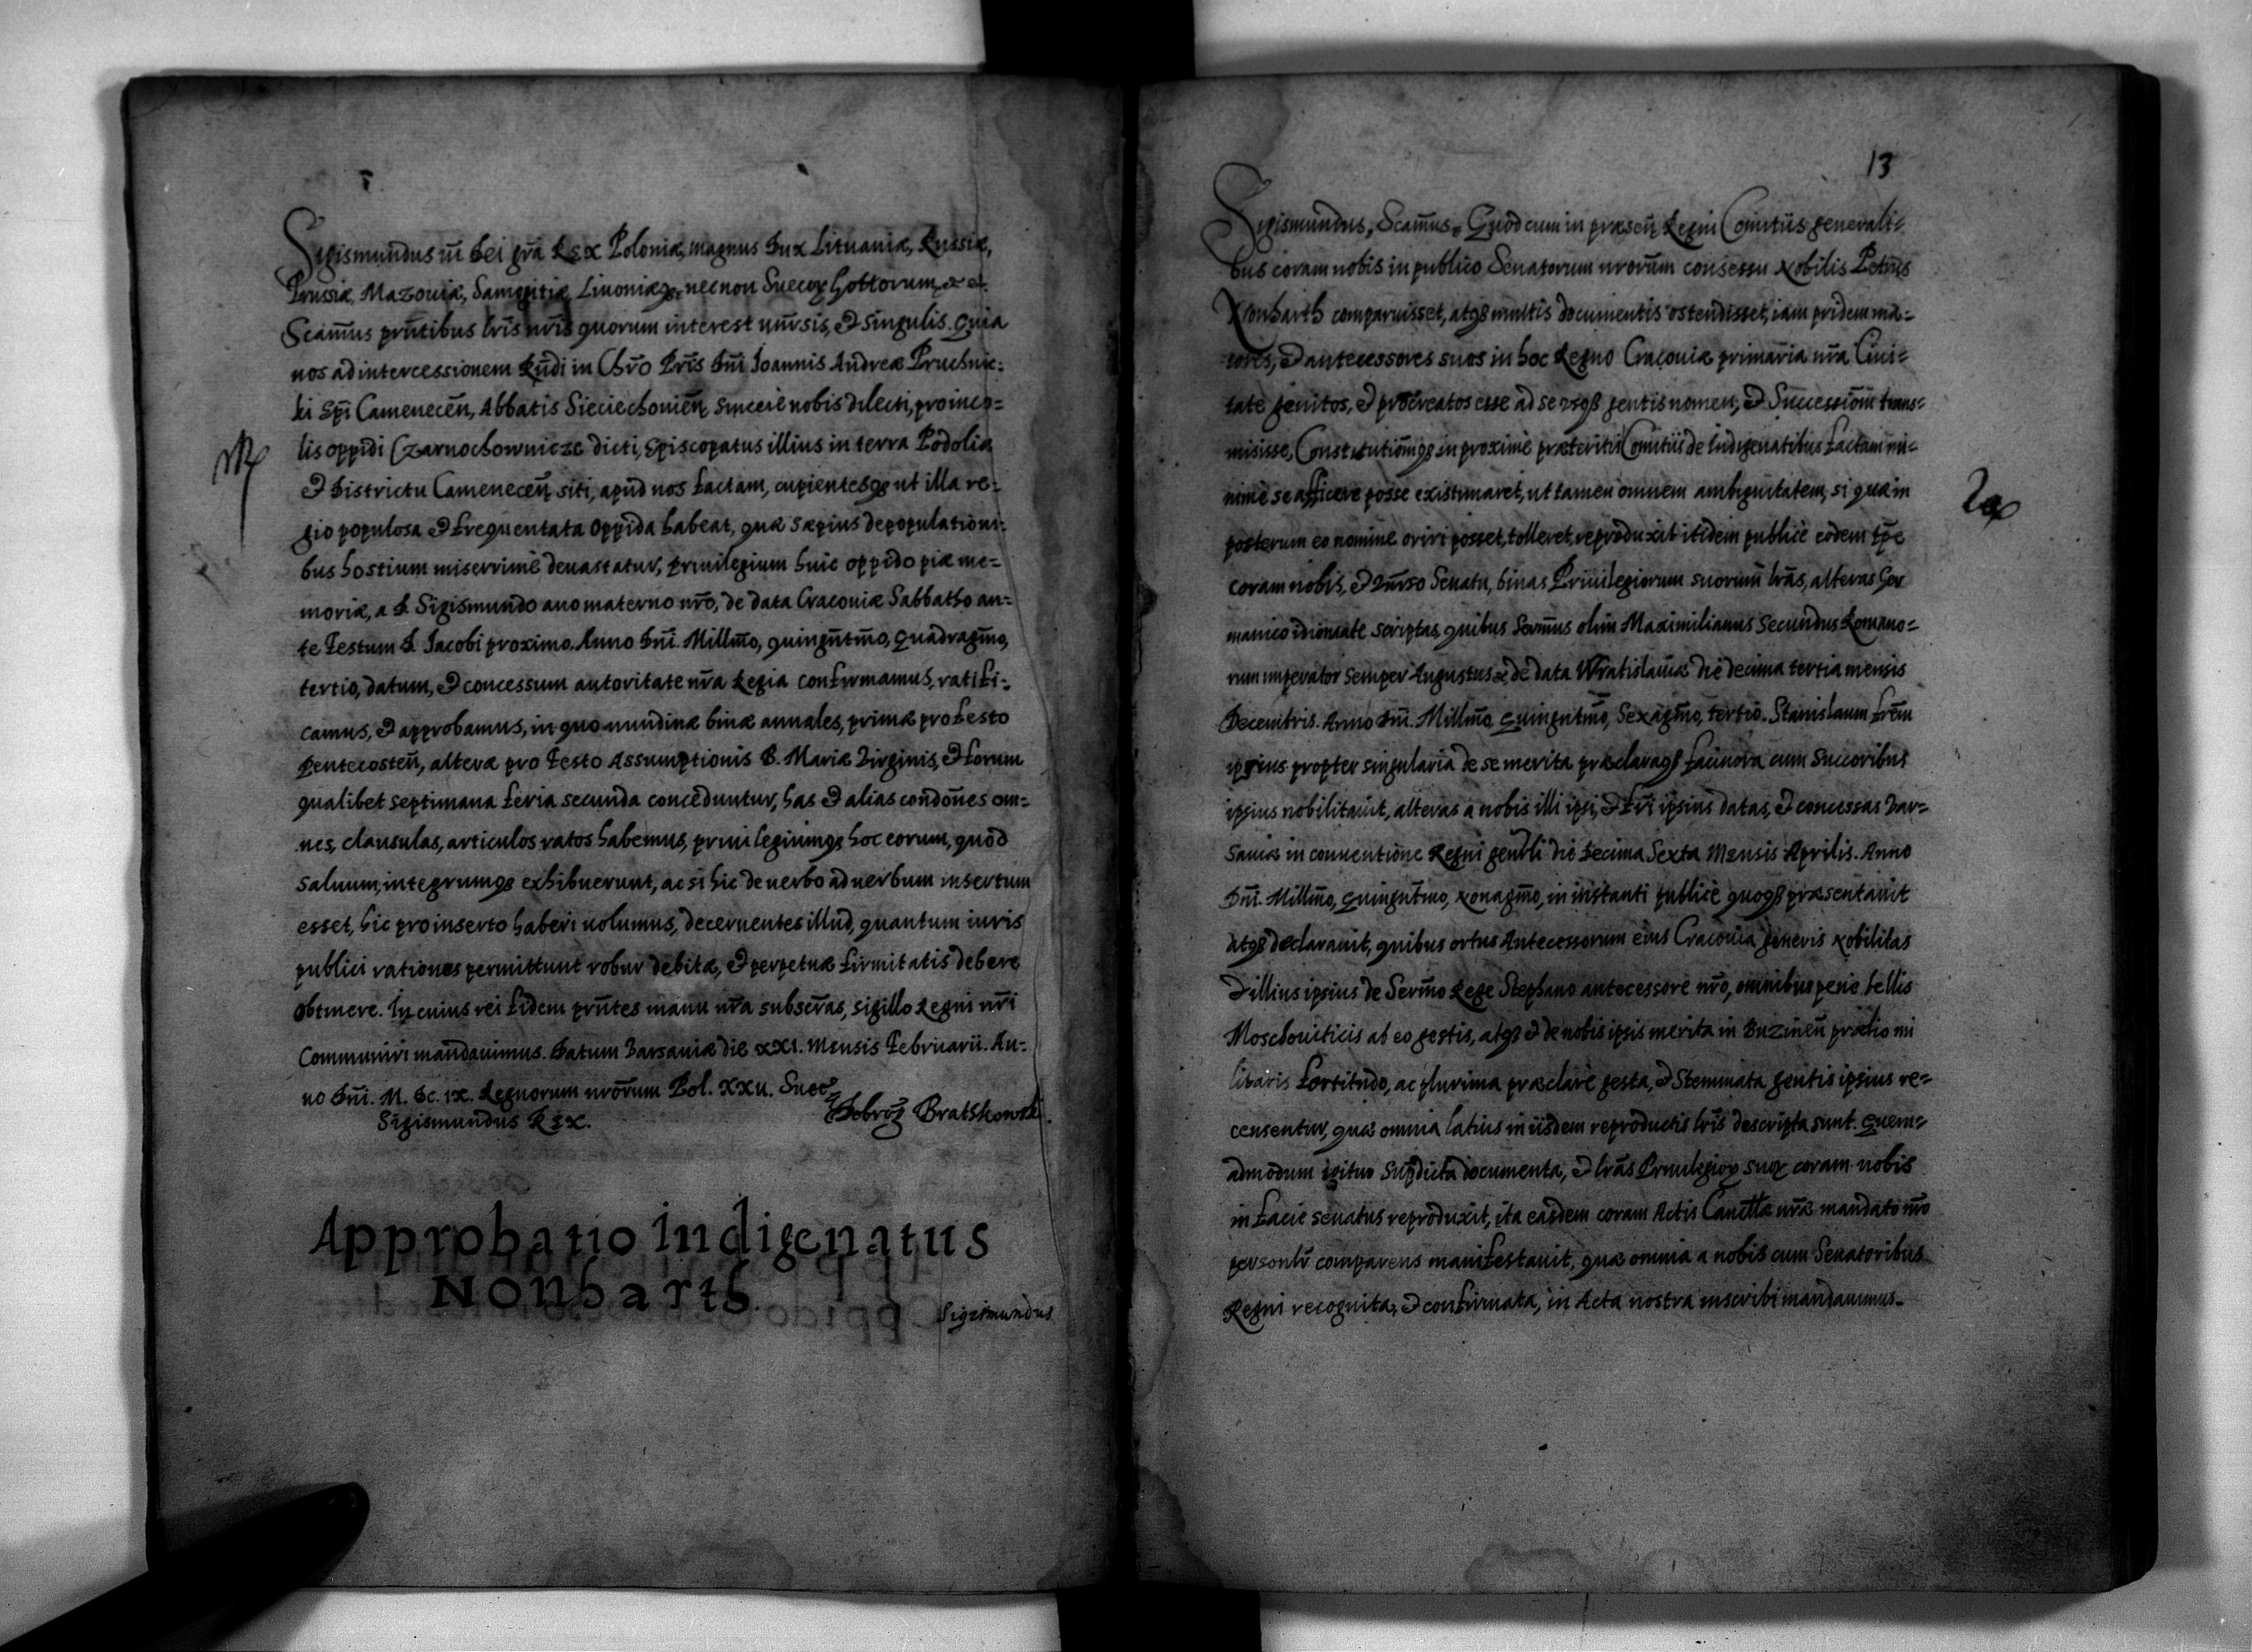 Sigismundus iii Dei grã Rex Poloniæ, magnus Dux Lituaniæ, Russiæ,
Prussiæ, Mazouiæ, Samogitiæ, Liuoniæq3, necnon Suecoꝝ Gottorum, &c.
Scam̃us prñtibus lr̃is nr̃is quorum interest uñrsis, & singulis. Quia
nos ad intercessionem Rñdi in Chr̃o Pr̃is Dñi Joannis Andreæ Pruchnic=
ki Ep̃i Camenecen̄, Abbatis Sieciechouien̄, sincerè nobis dilecti, pro inco=
lis oppidi Czarnochownicze dicti, Episcopatus illius in terra Podoliæ
& Districtu Camenecen̄ siti, apud nos factam, cupientesq3 ut illa re=
gio populosa & frequentata oppida habeat, quæ sæpius depopulationi=
bus hostium miserrimè deuastatur, priuilegium huic oppido piæ me=
moriæ, a D. Sigismundo auo materno nr̃o, de data Cracouiæ Sabbatho an=
te Festum S. Jacobi proximo. Anno Dñi. Millm̃o, quingñtm̃o, quadragm̃o,
tertio, datum, & concessum autoritate nr̃a Regia confirmamus, ratifi=
camus, & approbamus, in quo nundinæ binæ annales, primæ pro festo
Pentecosten̄, alteræ pro Festo Assumptionis B. Mariæ Virginis, & forum
qualibet septimana feria secunda conceduntur, has & alias condões om=
nes, clausulas, articulos ratos habemus, priuilegiumq3 hoc eorum, quod
saluum, integrumq3 exhibuerunt, ac si hic de uerbo ad uerbum insertum
esset, hic pro inserto haberi uolumus, decernentes illud, quantum iuris
publici rationes permittunt robur debitæ, & perpetuæ firmitatis debere
obtinere. In cuius rei fidem prñtes manu nr̃a subscr̃as, sigillo Regni nr̃i
Communiri mandauimus. Datum Varsauiæ die XXI. Mensis Februarii. An=
no Dñi. M. DC. IX. Regnorum nrõrum Pol. XXII. Suec
Sigismundus Rex.
Bratskowski.
Approbatio Indigenatus
Nonharth.
Sigismundus
13
Sigismundus, Scam̃us. Quod cum in præsen̄ Regni Comitiis generali=
bus coram nobis in publico Senatorum nrõrum consessu Nobilis Petrus
Nonharth comparuisset, atq3 multis documentis ostendisset, iam pridem ma=
iores, & antecessores suos in hoc Regno Cracouiæ primaria nr̃a Ciui=
tate genitos, & procreatos esse ad se usq3 gentis nomen, & Successiom̃ trans=
misisse, Constitutiom̃q3 in proximè præteritis Comitiis de Indigenatibus factam mi=
nimè se afficere posse existimaret, ut tamen omnem ambiguitatem, si quæ in
posterum eo nomine oriri posset, tolleret, reproduxit itidem publicè eodem tp̃e
coram nobis, & uñrso Senatu, binas Priuilegiorum suorum lr̃as, alteras Ger
manico idiomate scriptas, quibus Serm̃us olim Maximilianus Secundus Romano=
rum imperator semper Augustus &c de data Wratislauiæ die decima tertia mensis
Decembris. Anno Dñi. Millm̃o, quingñtm̃o, Sexagm̃o, tertio. Stanislaum frẽm
ipsius propter singularia de se merita præclaraq3 facinora cum Succoribus
ipsius nobilitauit, alteras a nobis illi ipsi, & fr̃i ipsius datas, & concessas Var=
sauiæ in conuentione Regni genrãli die decima Sexta Mensis Aprilis. Anno
Dñi. Millm̃o, quingñtm̃o, Nonagm̃o, in instanti publicè quoq3 præsentauit
atq3 declarauit, quibus ortus Antecessorum eius Cracouia generis Nobilitas
& illius ipsius de Serm̃o Rege Stephano antecessore nr̃o, omnibus penè bellis
Moschouiticis ab eo gestis, atq3 & de nobis ipsis merita in Buzinen̄ prælio mi
litaris fortitudo, ac plurima præclarè gesta, & Stemmata gentis ipsius re=
censentur, quæ omnia latius in iisdem reproductis lr̃is descripta sunt. Quem=
admodum igitur suprãdicta documenta, & lr̃as Priuilegioꝝ suoꝝ coram nobis
in facie senatus reproduxit, ita easdem coram Actis Cancellæ nr̃æ mandato nr̃o
personlr̃ comparens manifestauit, quæ omnia a nobis cum Senatoribus
Regni recognita, & confirmata, in Acta nostra inscribi mandauimus.